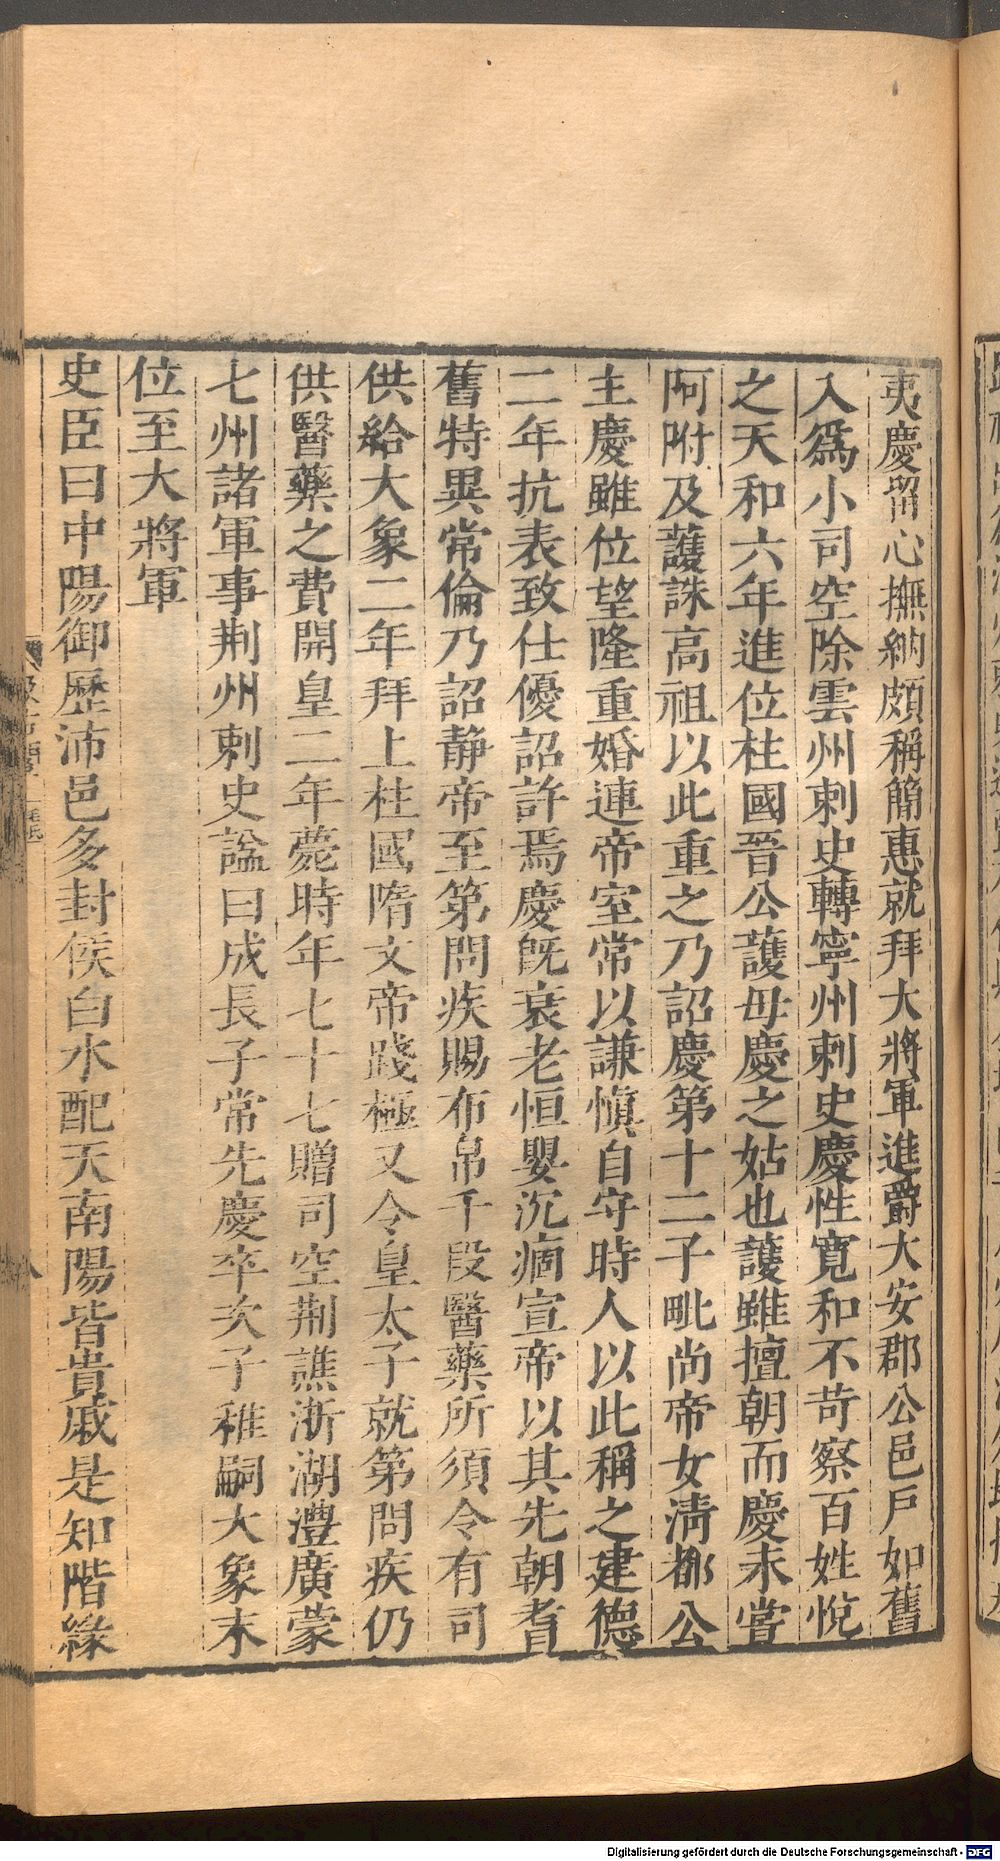 夷慶留心撫納頗稱簡惠就拜大將軍進爵大安郡公邑戶如舊
入爲小司空除雲州刺史轉寧州刺史慶性寬和不苛察百姓悅
之天和六年進位柱國晉公護母慶之姑也護雖擅朝而慶未嘗
阿附及護誅高祖以此重之乃詔慶第十二子毗尚帝女淸都公
主慶雖位望隆重婚連帝室常以謙愼自守時人以此稱之建德
二年抗表致仕優詔許焉慶旣衰老恒嬰沉痼宣帝以其先朝耆
舊特異常倫乃詔靜帝至第問疾賜布帛千段醫藥所須令有司
供給大象二年拜上柱國隋文帝踐極又令皇太子就第問疾仍
供醫藥之費開皇二年薨時年七十七贈司空荆譙淅湖灃廣蒙
七州諸軍事荆州刺史諡曰成長子常先慶卒次子稚嗣大象末
位至大將軍
史臣曰中陽御歷沛邑多封侯白水配天南陽皆貴戚是知階緣
Digitalisierung gefördert durch die Deutsche Forschungsgemeinschaft - DFG